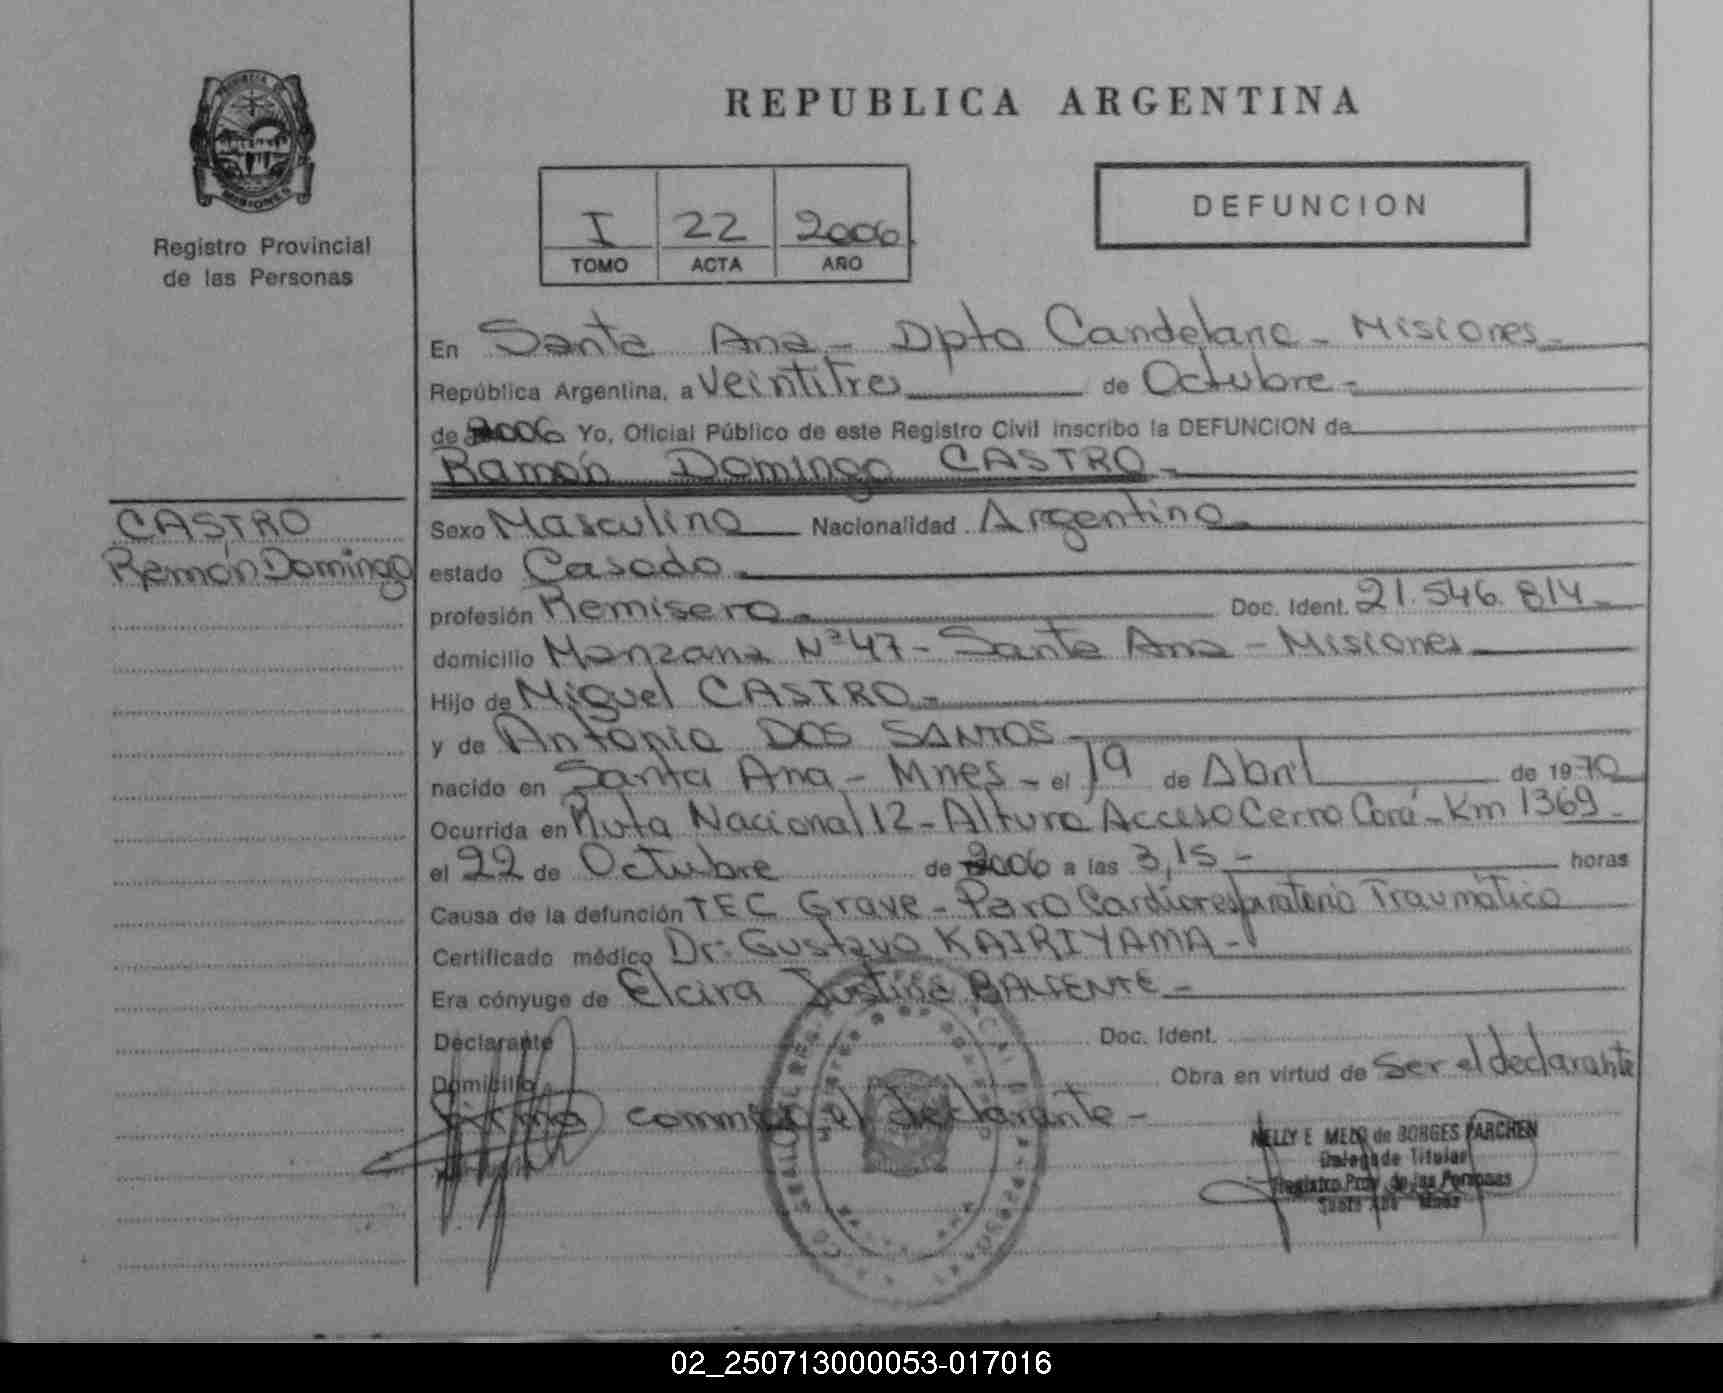 REPUBLICA ARGENTINA
MISIONES
Registro Provincial
de las Personas
I 22 2006
TOMO ACTA AÑO
DEFUNCION
En Santa Ana - Dpto Candelaria - Misiones -
República Argentina, a Veintitres de Octubre -
de 2006 Yo, Oficial Público de este Registro Civil inscribo la DEFUNCION de
Ramón Domingo CASTRO -
CASTRO
Ramón Domingo
Sexo Masculino Nacionalidad Argentino
estado Casado
profesión Remisero Doc. Ident. 21.546.814 -
domicilio Manzana Nº 47 - Santa Ana - Misiones
Hijo de Miguel CASTRO -
y de Antonia DOS SANTOS -
nacido en Santa Ana - Mnes - el 19 de Abril de 1970
Ocurrida en Ruta Nacional 12 - Altura Acceso Cerro Corá - Km 1369 -
el 22 de Octubre de 2006 a las 3,15 - horas
Causa de la defunción TEC Grave - Paro Cardiorespiratorio Traumático
Certificado médico Dr: Gustavo KAIRIYAMA -
Era cónyuge de Elcira Justina -
Declarante Doc. Ident.
Domicilio Obra en virtud de Ser el declarante
Firma conmigo el declarante -
NELLY E. MELO de BORGES PARCHEN
Delegada Titular
Registro Prov. de las Personas
Santa Ana Mnes
02_250713000053-017016